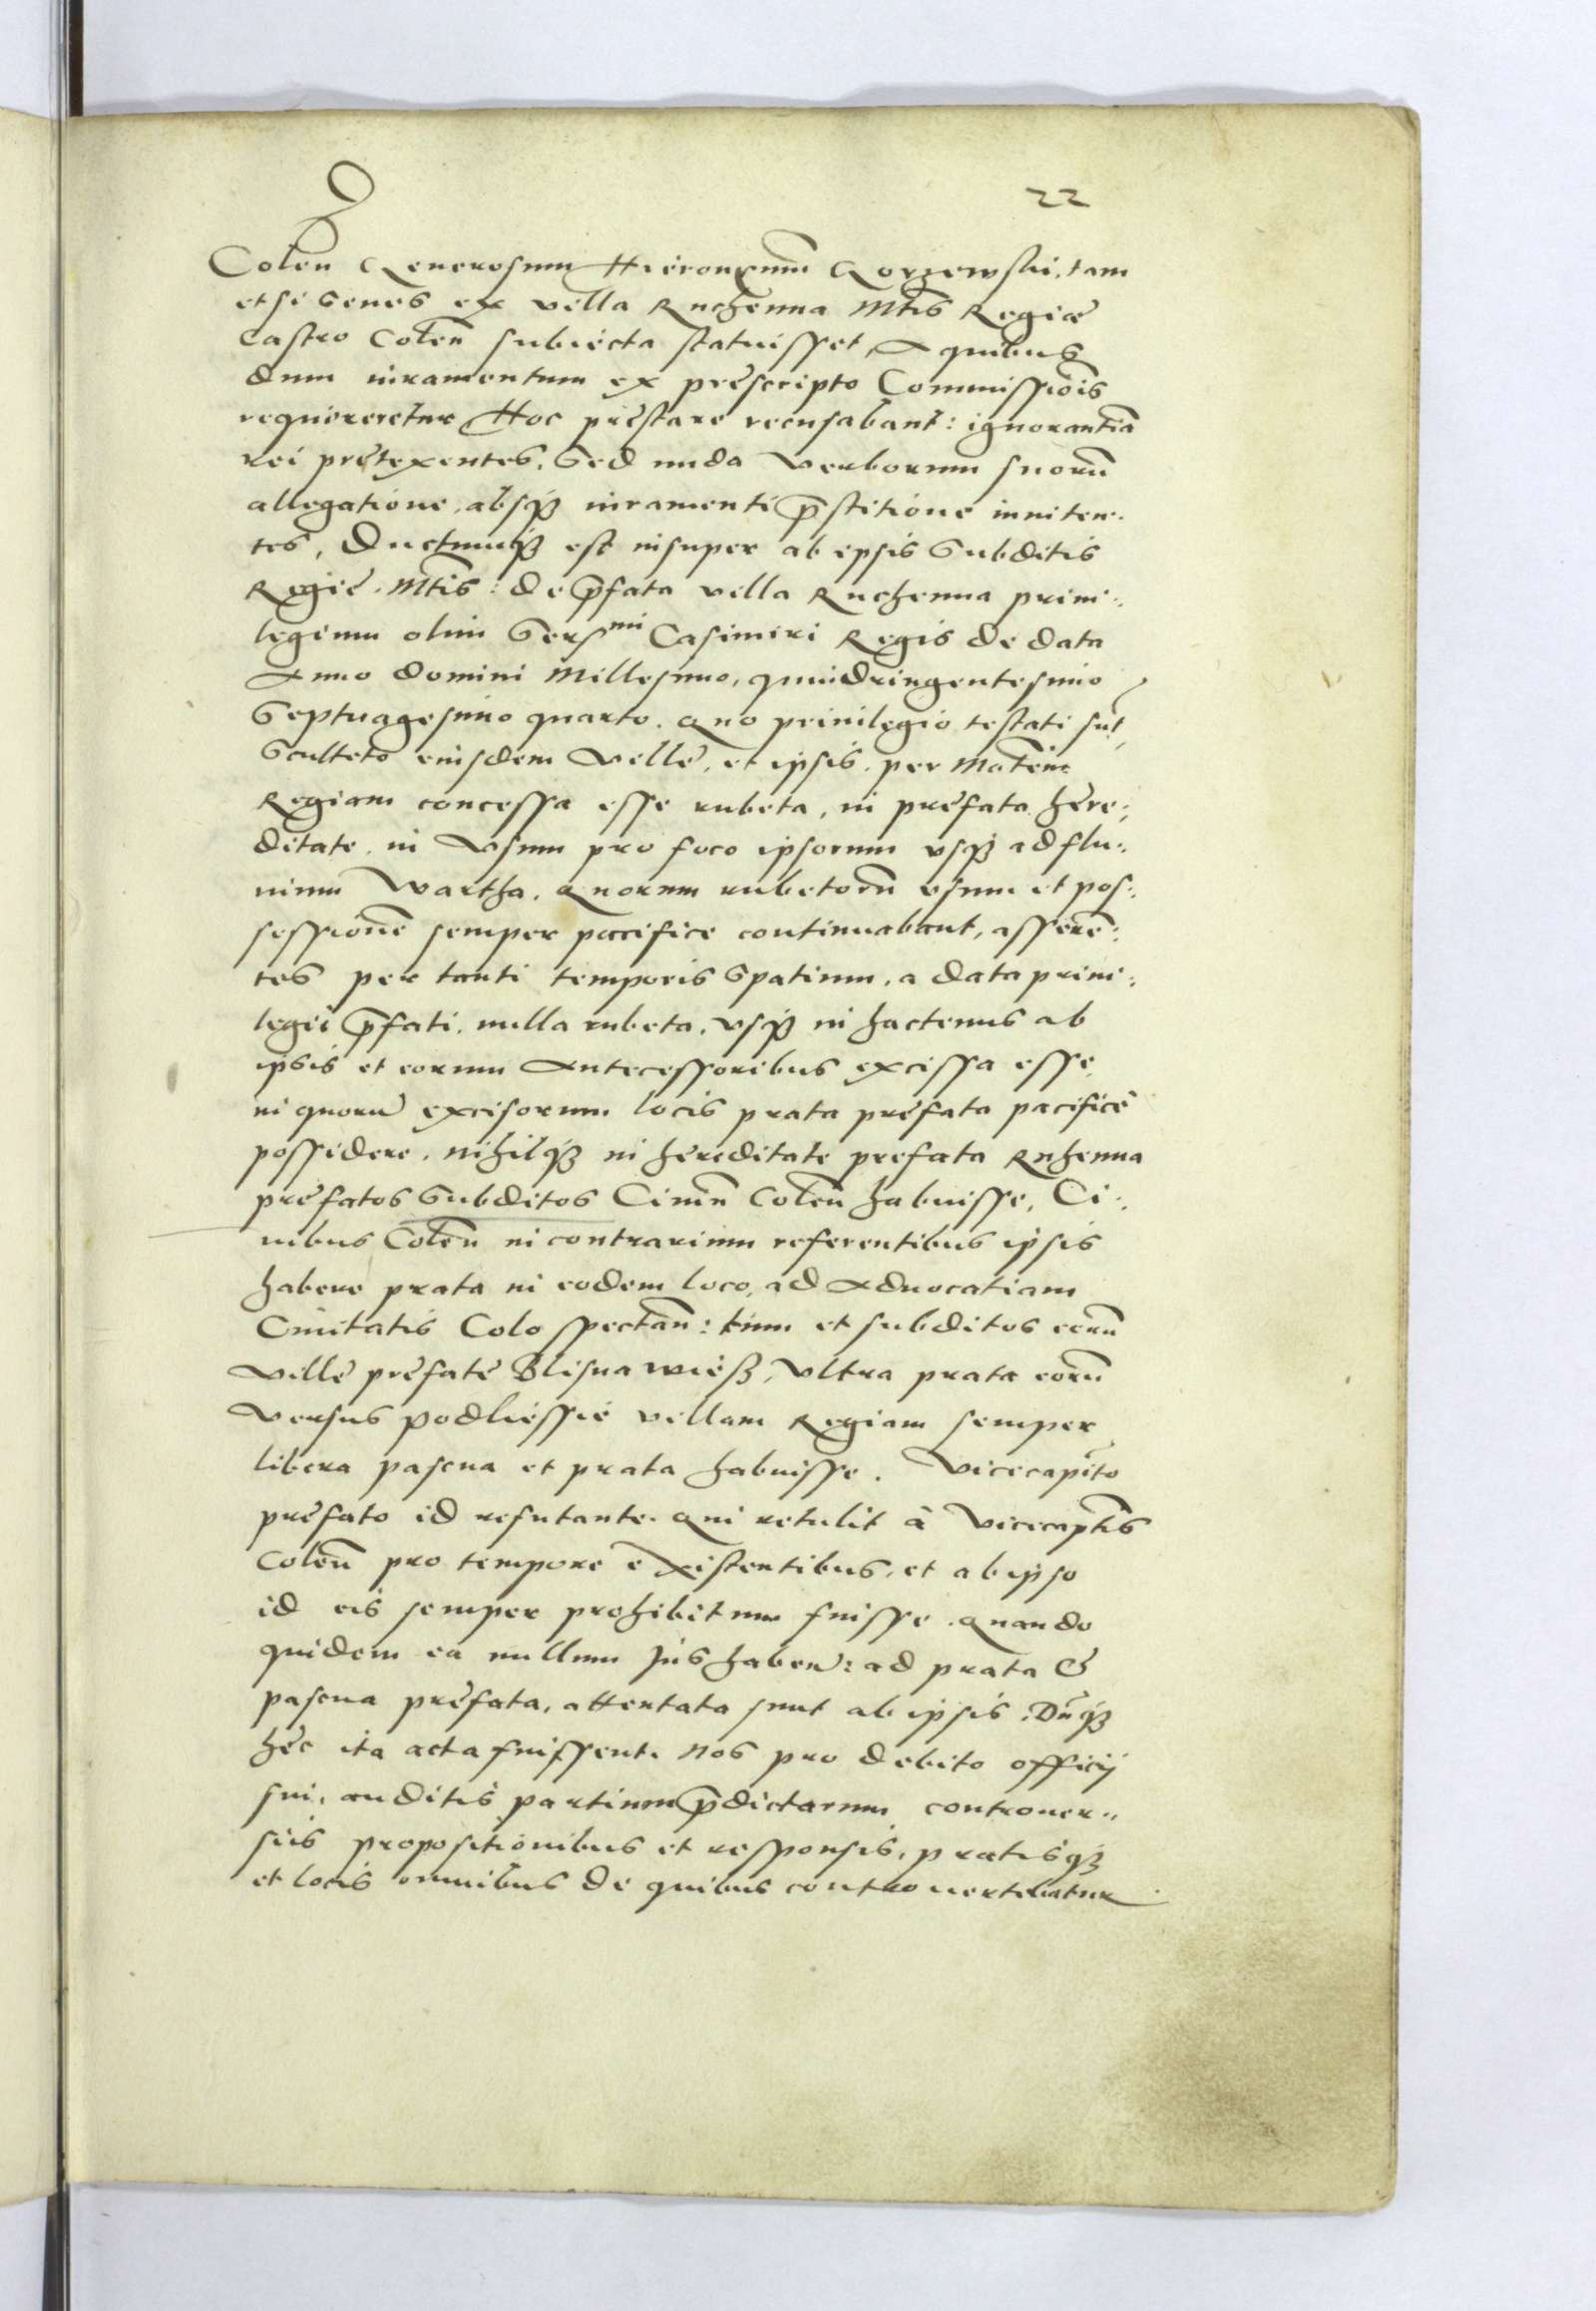 22
Coleñ Generosum Hieronymum Gorzewski, tam
etsi senes ex villa Ruchenna Mtis Regiæ
Castro Coleñ subiecta statuisset, A quibus
dum iuramentum ex prescripto Commissiois
requireretur Hoc prestare recusabant: ignorantiã
rei pretexentes, Sed nuda verborum suorũ
allegatione, absq3 iuramenti p̄stitione inniten.
tes, Ductumq3 est insuper ab ipsis Subditis
Regie. Mtis: de p̄fata villa Ruchenna priui:
legium olim Serssmi Casimiri Regis de data
Anno domini Millesimo, quindringentesimo
Septuagesimo quarto. Quo priuilegio testati sũt
Sculteto eiusdem Ville, et ipsis, per Matem
Regiam concessa esse rubeta, in prefata here:
ditate, in Vsum pro foco ipsorum vsq3 ad flu:
uium Wartha. Quorum rubetorũ vsum et pos:
sessionẽ semper pacifice continuabant, asserẽ:
tes per tanti temporis Spatium, a data priui:
legii p̄fati, nulla rubeta, vsq3 in hactenus ab
ipsis et eorum Antecessoribus excissa esse
in quorũ excisorum locis prata prefata pacifice
possidere. Nihilq3 in hereditate prefata Ruhenna
prefatos Subditos Ciuiũ Coleñ habuisse, Ci:
uibus Coleñ in contrarium referentibus ipsis
habere prata in eodem loco, ad Aduocatiam
Ciuitatis Colo spectañ: tum et subditos eorũ
Ville prefate Blisna wieß, Vltra prata eorũ
Versus Podliessie villam Regiam semper
libera pascua et prata habuisse. Vicecapito
prefato id refutante. Qui retulit à Vicecaptis
Coleñ pro tempore existentibus, et ab ipso
id eis semper prohibitum fuisse. Quando
quidem ea nullum Jus haben: ad prata &
pascua prefata, attentata sunt ab ipsis. Dũq3
hec ita acta fuissent. Nos pro debito officij
sui, auditis partium p̄dictarum controuer:
siis propositionibus et responsis, pratisq3
et locis omnibus de quibus controuertebatur